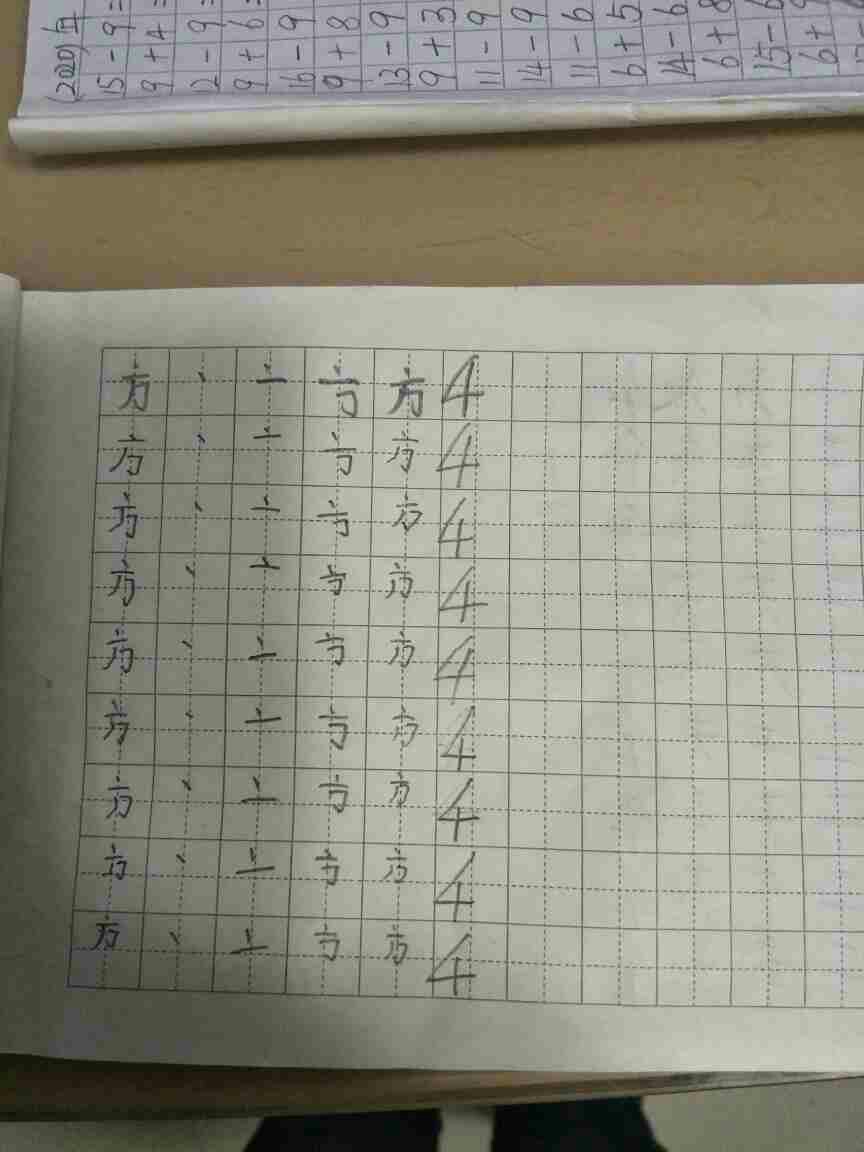 (2020)
15-9=
9+4=
12-9=
9+6=
16-9
9+8
13-9
9+3
11-9
14-9
11-6
6+5
14-6
6+8
15-6
6+
方 丶 亠 方 4
方 丶 亠 方 4
方 丶 亠 方 4
方 丶 亠 方 4
方 丶 亠 方 4
方 丶 亠 方 4
方 丶 亠 方 4
方 丶 亠 方 4
方 丶 亠 方 4